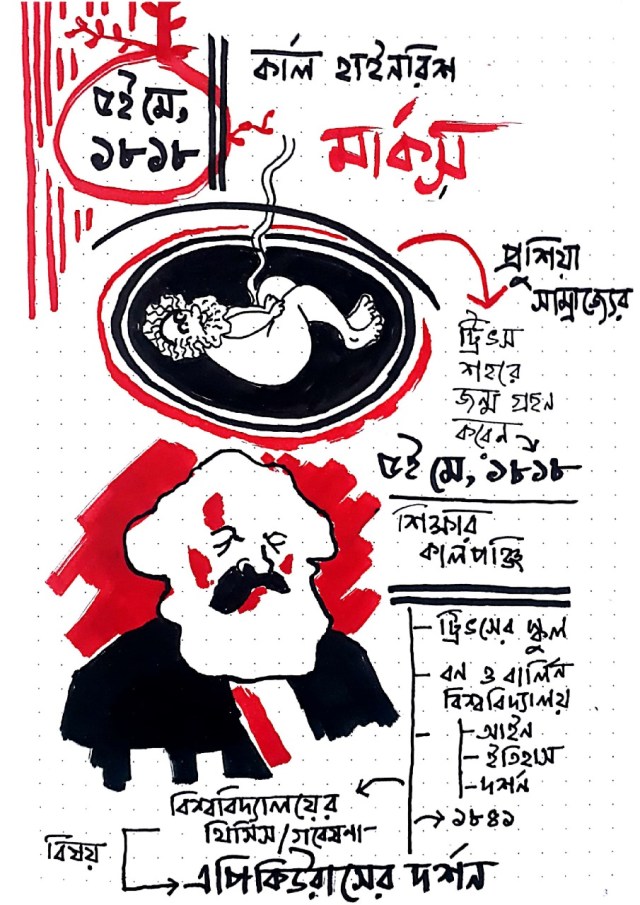 ৫ই মে,
১৮১৮
কার্ল হাইনরিশ
মার্কস্
প্রুশিয়া
সাম্রাজ্যের
ট্রিভস
শহরে
জন্ম গ্রহন
করেন
৫ই মে, ১৮১৮
শিক্ষার
কালপঞ্জি
ট্রিভসের স্কুল
বন ও বার্লিন
বিশ্ববিদ্যালয়
আইন
ইতিহাস
দর্শন
১৮৪১
বিশ্ববিদ্যালয়ের
থিসিস/গবেষনা
বিষয়
এপিকিউরাসের দর্শন